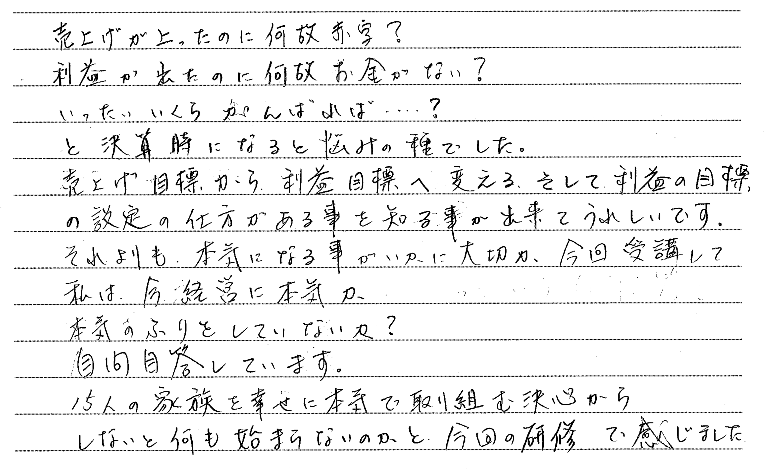 売上げが上ったのに何故赤字?
利益が出たのに何故お金がない?
いったいいくらがんばれば‥‥?
と決算時になると悩みの種でした。
売上げ目標から利益目標へ変える、そして利益の目標
の設定の仕方がある事を知る事が出来てうれしいです。
それよりも、本気になる事がいかに大切か、今回受講して
私は、今経営に本気か、
本気のふりをしていないか?
自問自答しています。
15人の家族を幸せに本気で取り組む決心から
しないと何も始まらないのかと、今回の研修で感じました